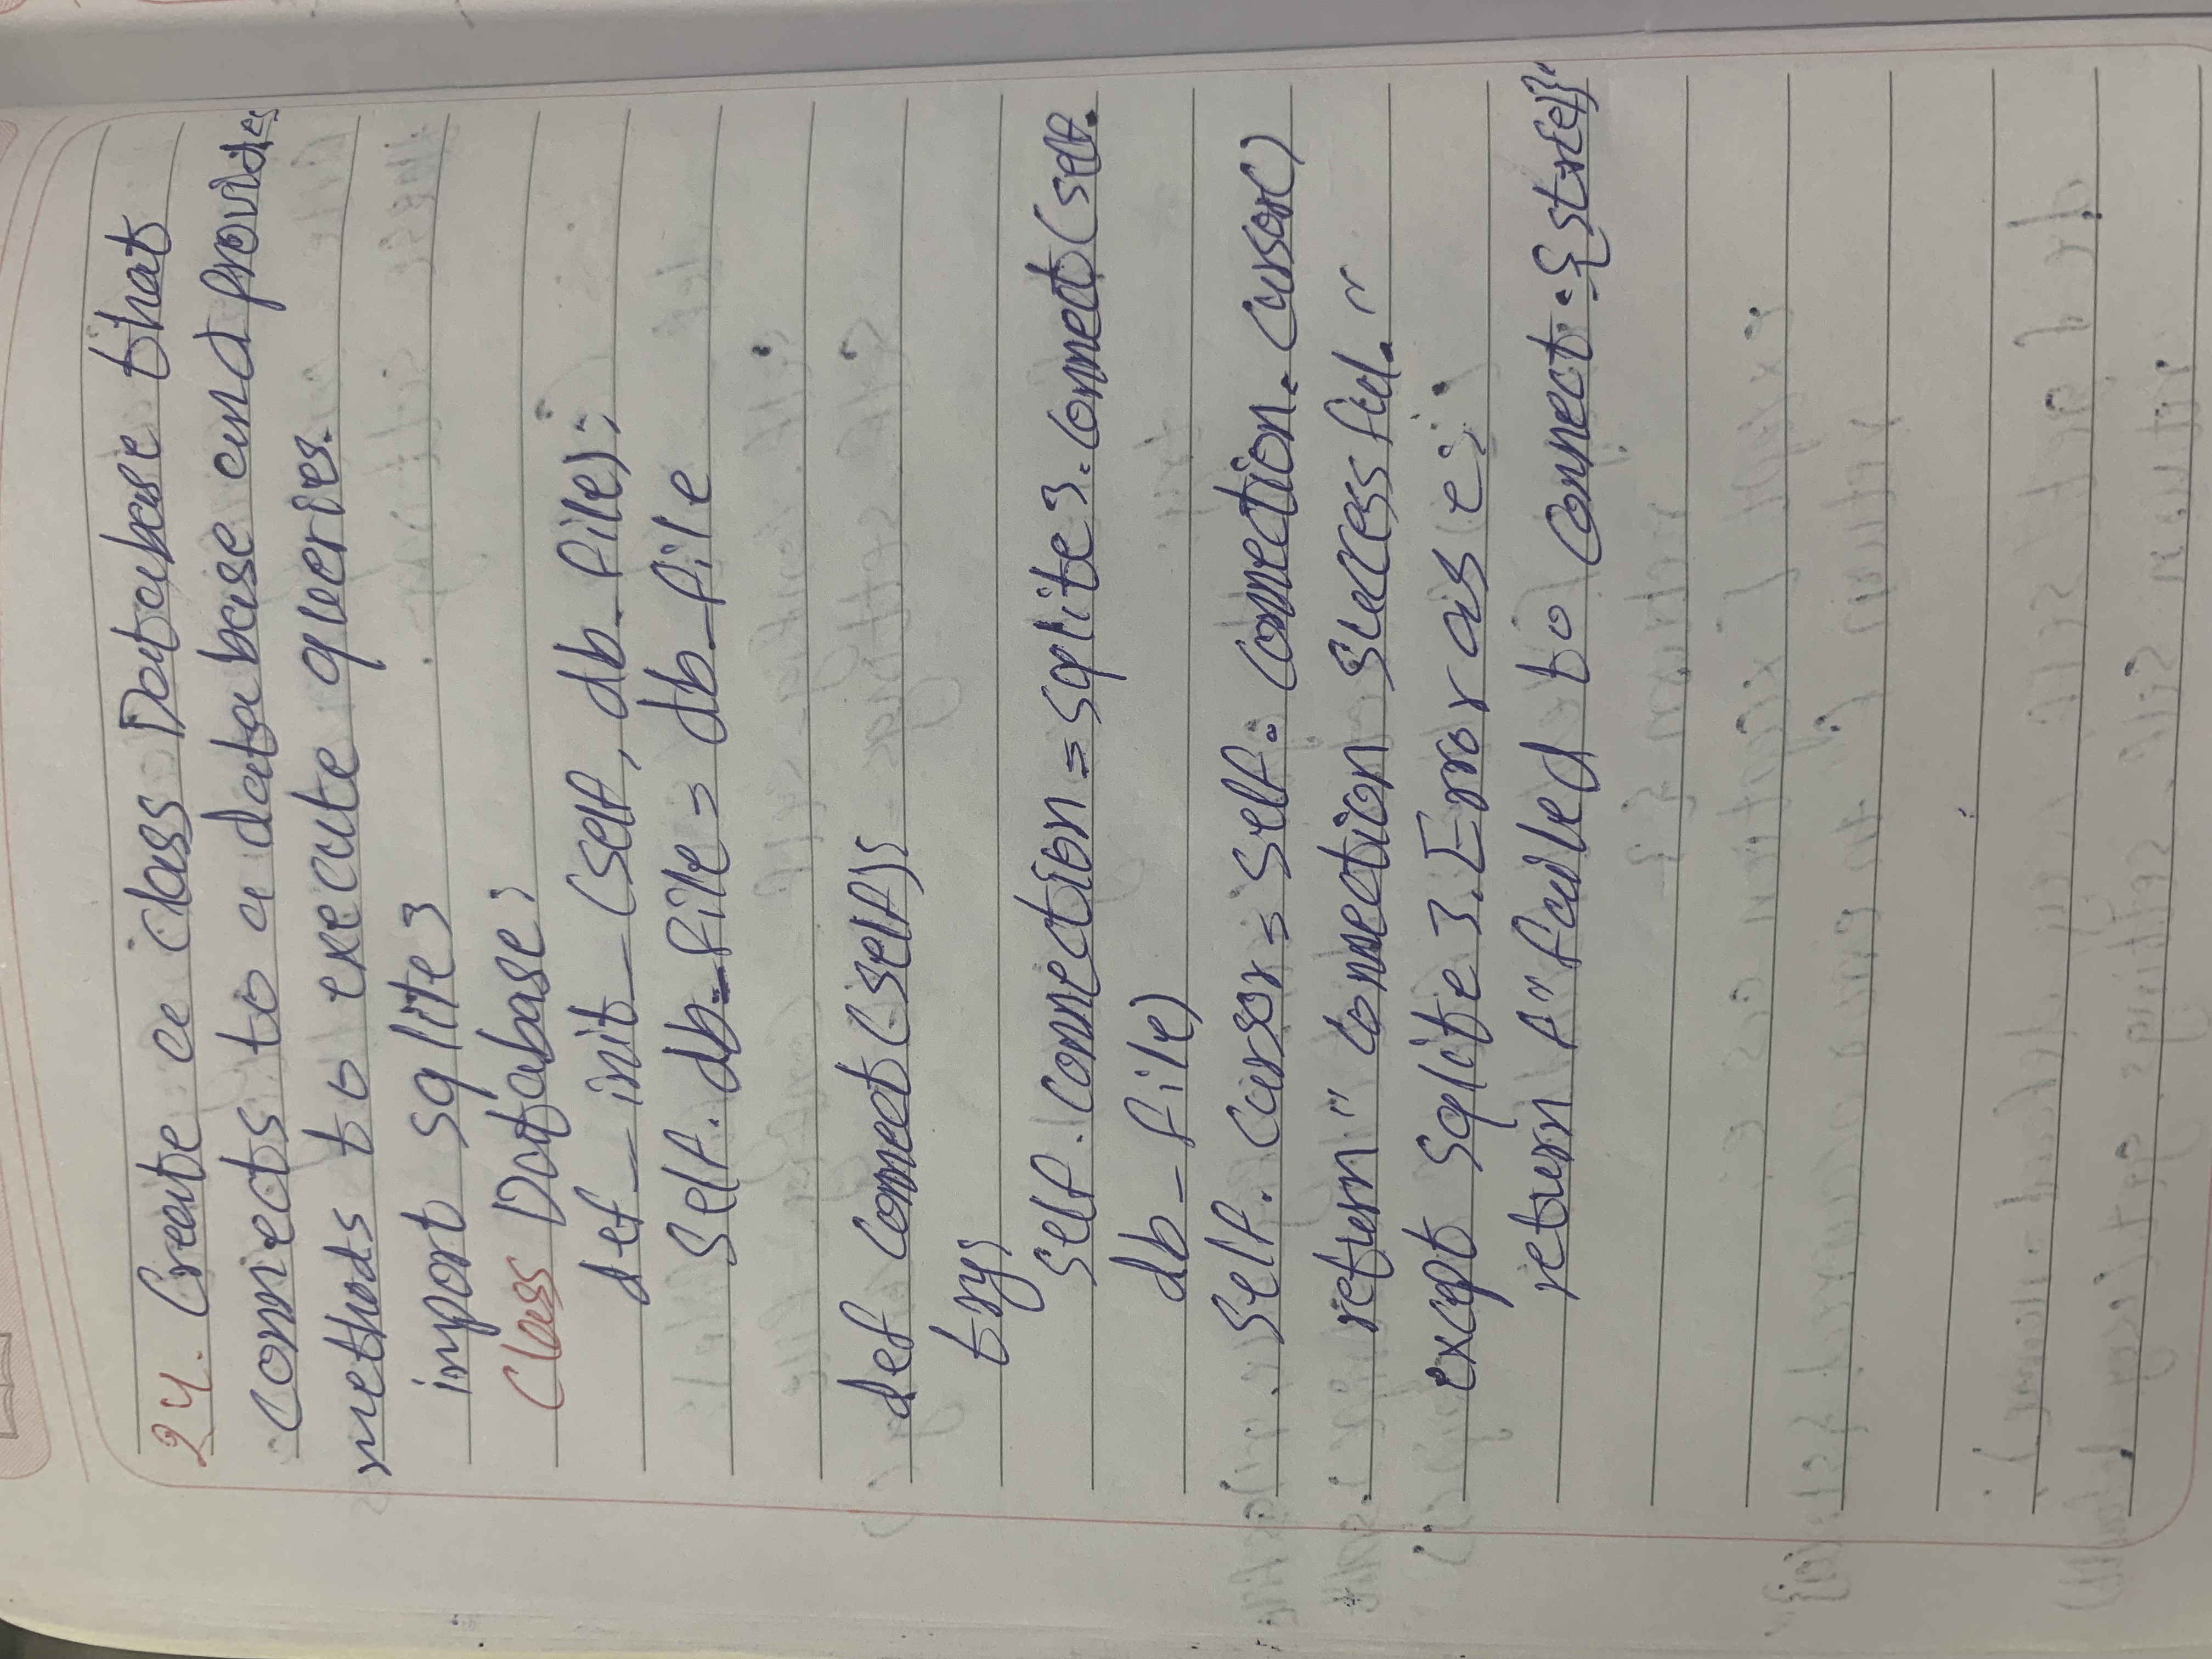 24. Create a class Database that
connects to a database and provides
methods to execute queries.
import sqlite3
Class Database:
def _init_(self, db_file):
self.db_file = db_file
def connect(self):
try:
self.connection = sqlite3.connect(self.
db_file)
self.cursor = self.connection.cursor()
return "connection successful."
except sqlite3.Error as e:
return f"failed to connect:{str(e)}"